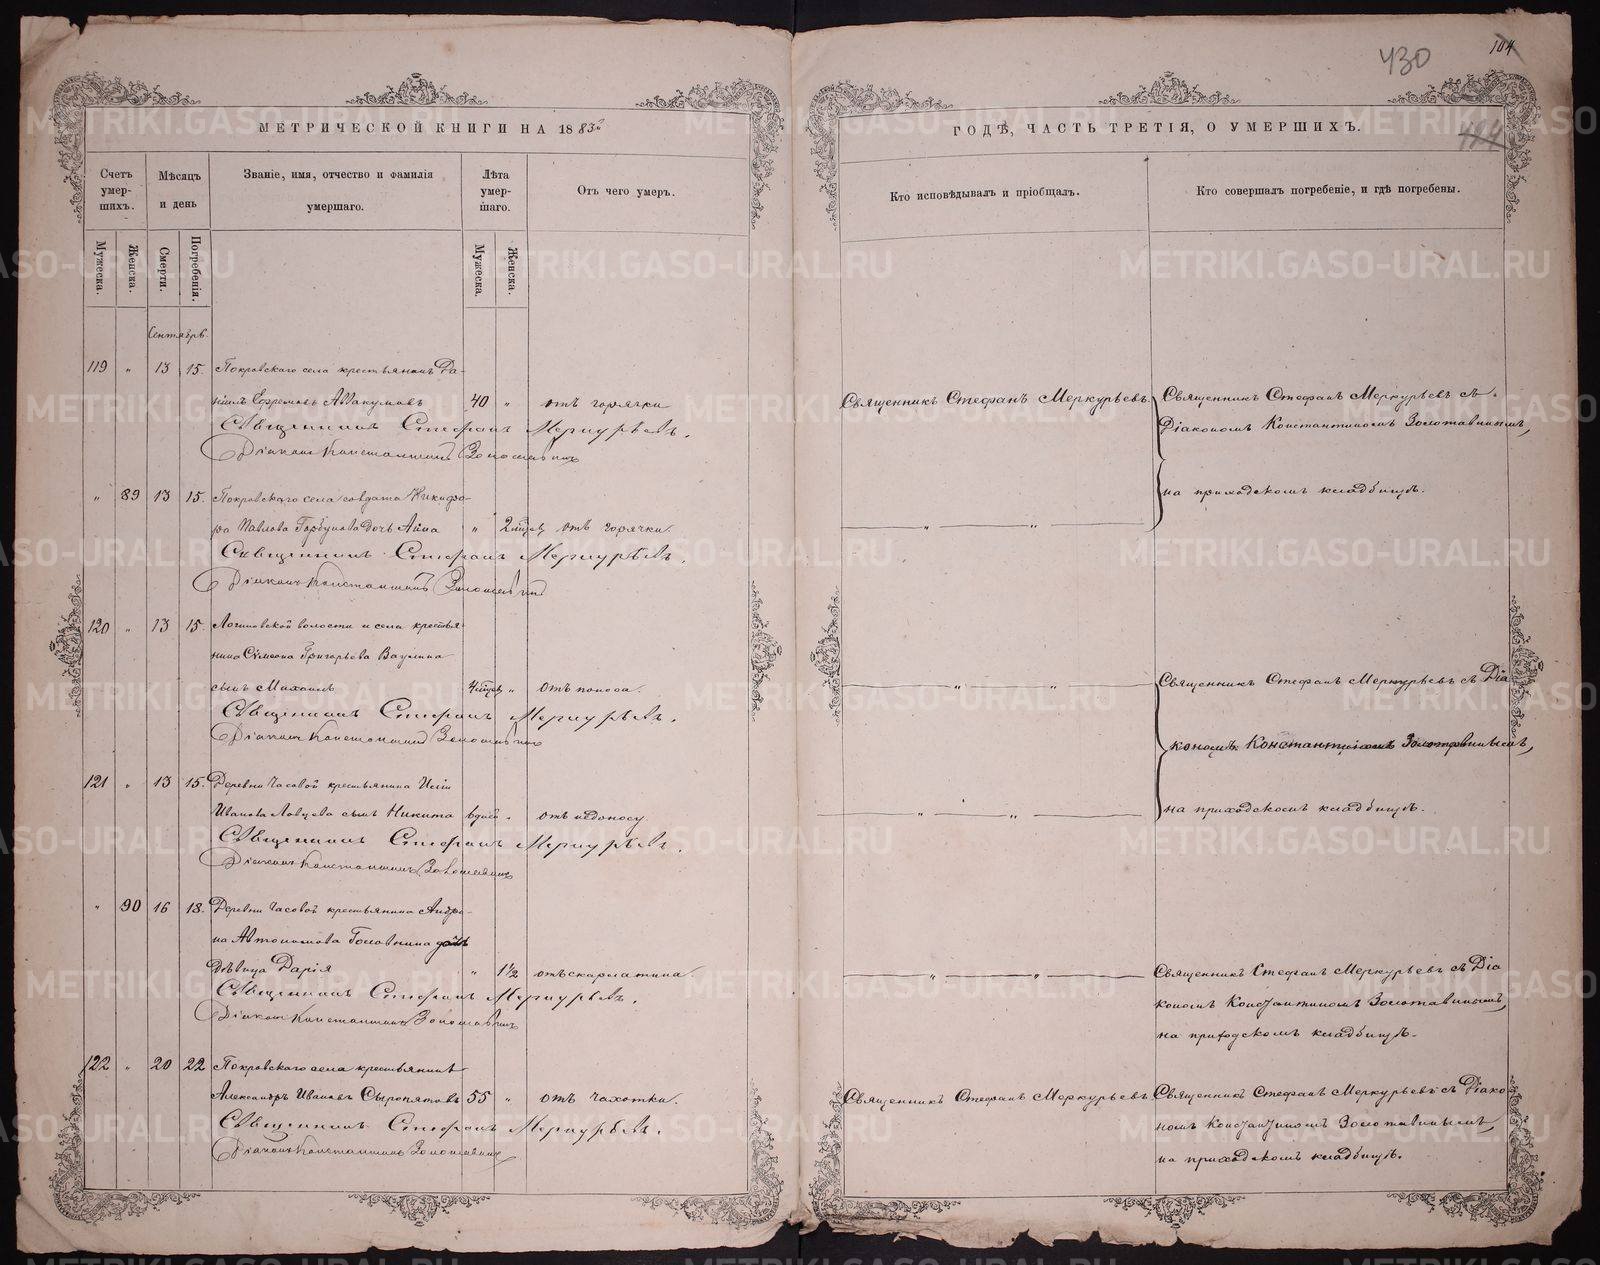 430
104
424
МЕТРИЧЕСКОЙ КНИГИ НА 1883
ГОДѢ, ЧАСТЬ ТРЕТІЯ, О УМЕРШИХЪ.
Счетъ умер-шихъ.
Мѣсяцъ и день
Званіе, имя, отчество и фамилія умершаго.
Лѣта умер-шаго.
Отъ чего умеръ.
Кто исповѣдывалъ и пріобщалъ.
Кто совершалъ погребеніе, и гдѣ погребены.
Мужеска.
Женска.
Смерти.
Погребенія.
Мужеска.
Женска.
Сентябрь
119 " 13 15. Покровскаго села крестьянинъ Да-
ніилъ Ефремовъ Аввакумовъ 40 " отъ горячки
Священникъ Стефанъ Меркурьевъ.
Діаконъ Константинъ Золотавинъ
Священникъ Стефанъ Меркурьевъ
Священникъ Стефанъ Меркурьевъ съ
Діакономъ Константиномъ Золотавинымъ,
на приходскомъ кладбищѣ.
" 89 13 15. Покровскаго села солдата Никифо-
ра Павлова Горбунова дочь Анна " 2 мѣсец. отъ горячки.
Священникъ Стефанъ Меркурьевъ.
Діаконъ Константинъ Золотавинъ
" "
120 " 13 15. Логиновской волости и села крестья-
нина Сѵмеона Григорьева Ваулина
сынъ Михаилъ 4 мѣсец. " отъ поноса.
Священникъ Стефанъ Меркурьевъ.
Діаконъ Константинъ Золотавинъ
" "
Священникъ Стефанъ Меркурьевъ съ Діа
кономъ Константиномъ Золотавинымъ,
на приходскомъ кладбищѣ.
121 " 13 15. Деревни Часовой крестьянина
Иванова сынъ Никита 6 дней " отъ недоносу
Священникъ Стефанъ Меркурьевъ.
Діаконъ Константинъ Золотавинъ
" "
" 90 16 18. Деревни Часовой крестьянина Андро-
на Автономова Головнина дочь
дѣвица Дарія " 1½ отъ скарлатина.
Священникъ Стефанъ Меркурьевъ.
Діаконъ Константинъ Золотавинъ
" "
Священникъ Стефанъ Меркурьевъ съ Діа
кономъ Константиномъ Золотавинымъ,
на приходскомъ кладбищѣ.
122 " 20 22 Покровскаго села крестьянинъ
Александръ Ивановъ Сыропятовъ 55 " отъ чахотки.
Священникъ Стефанъ Меркурьевъ.
Діаконъ Константинъ Золотавинъ
Священникъ Стефанъ Меркурьевъ
Священникъ Стефанъ Меркурьевъ съ Діако-
номъ Константиномъ Золотавинымъ,
на приходскомъ кладбищѣ.
METRIKI.GASO-URAL.RU